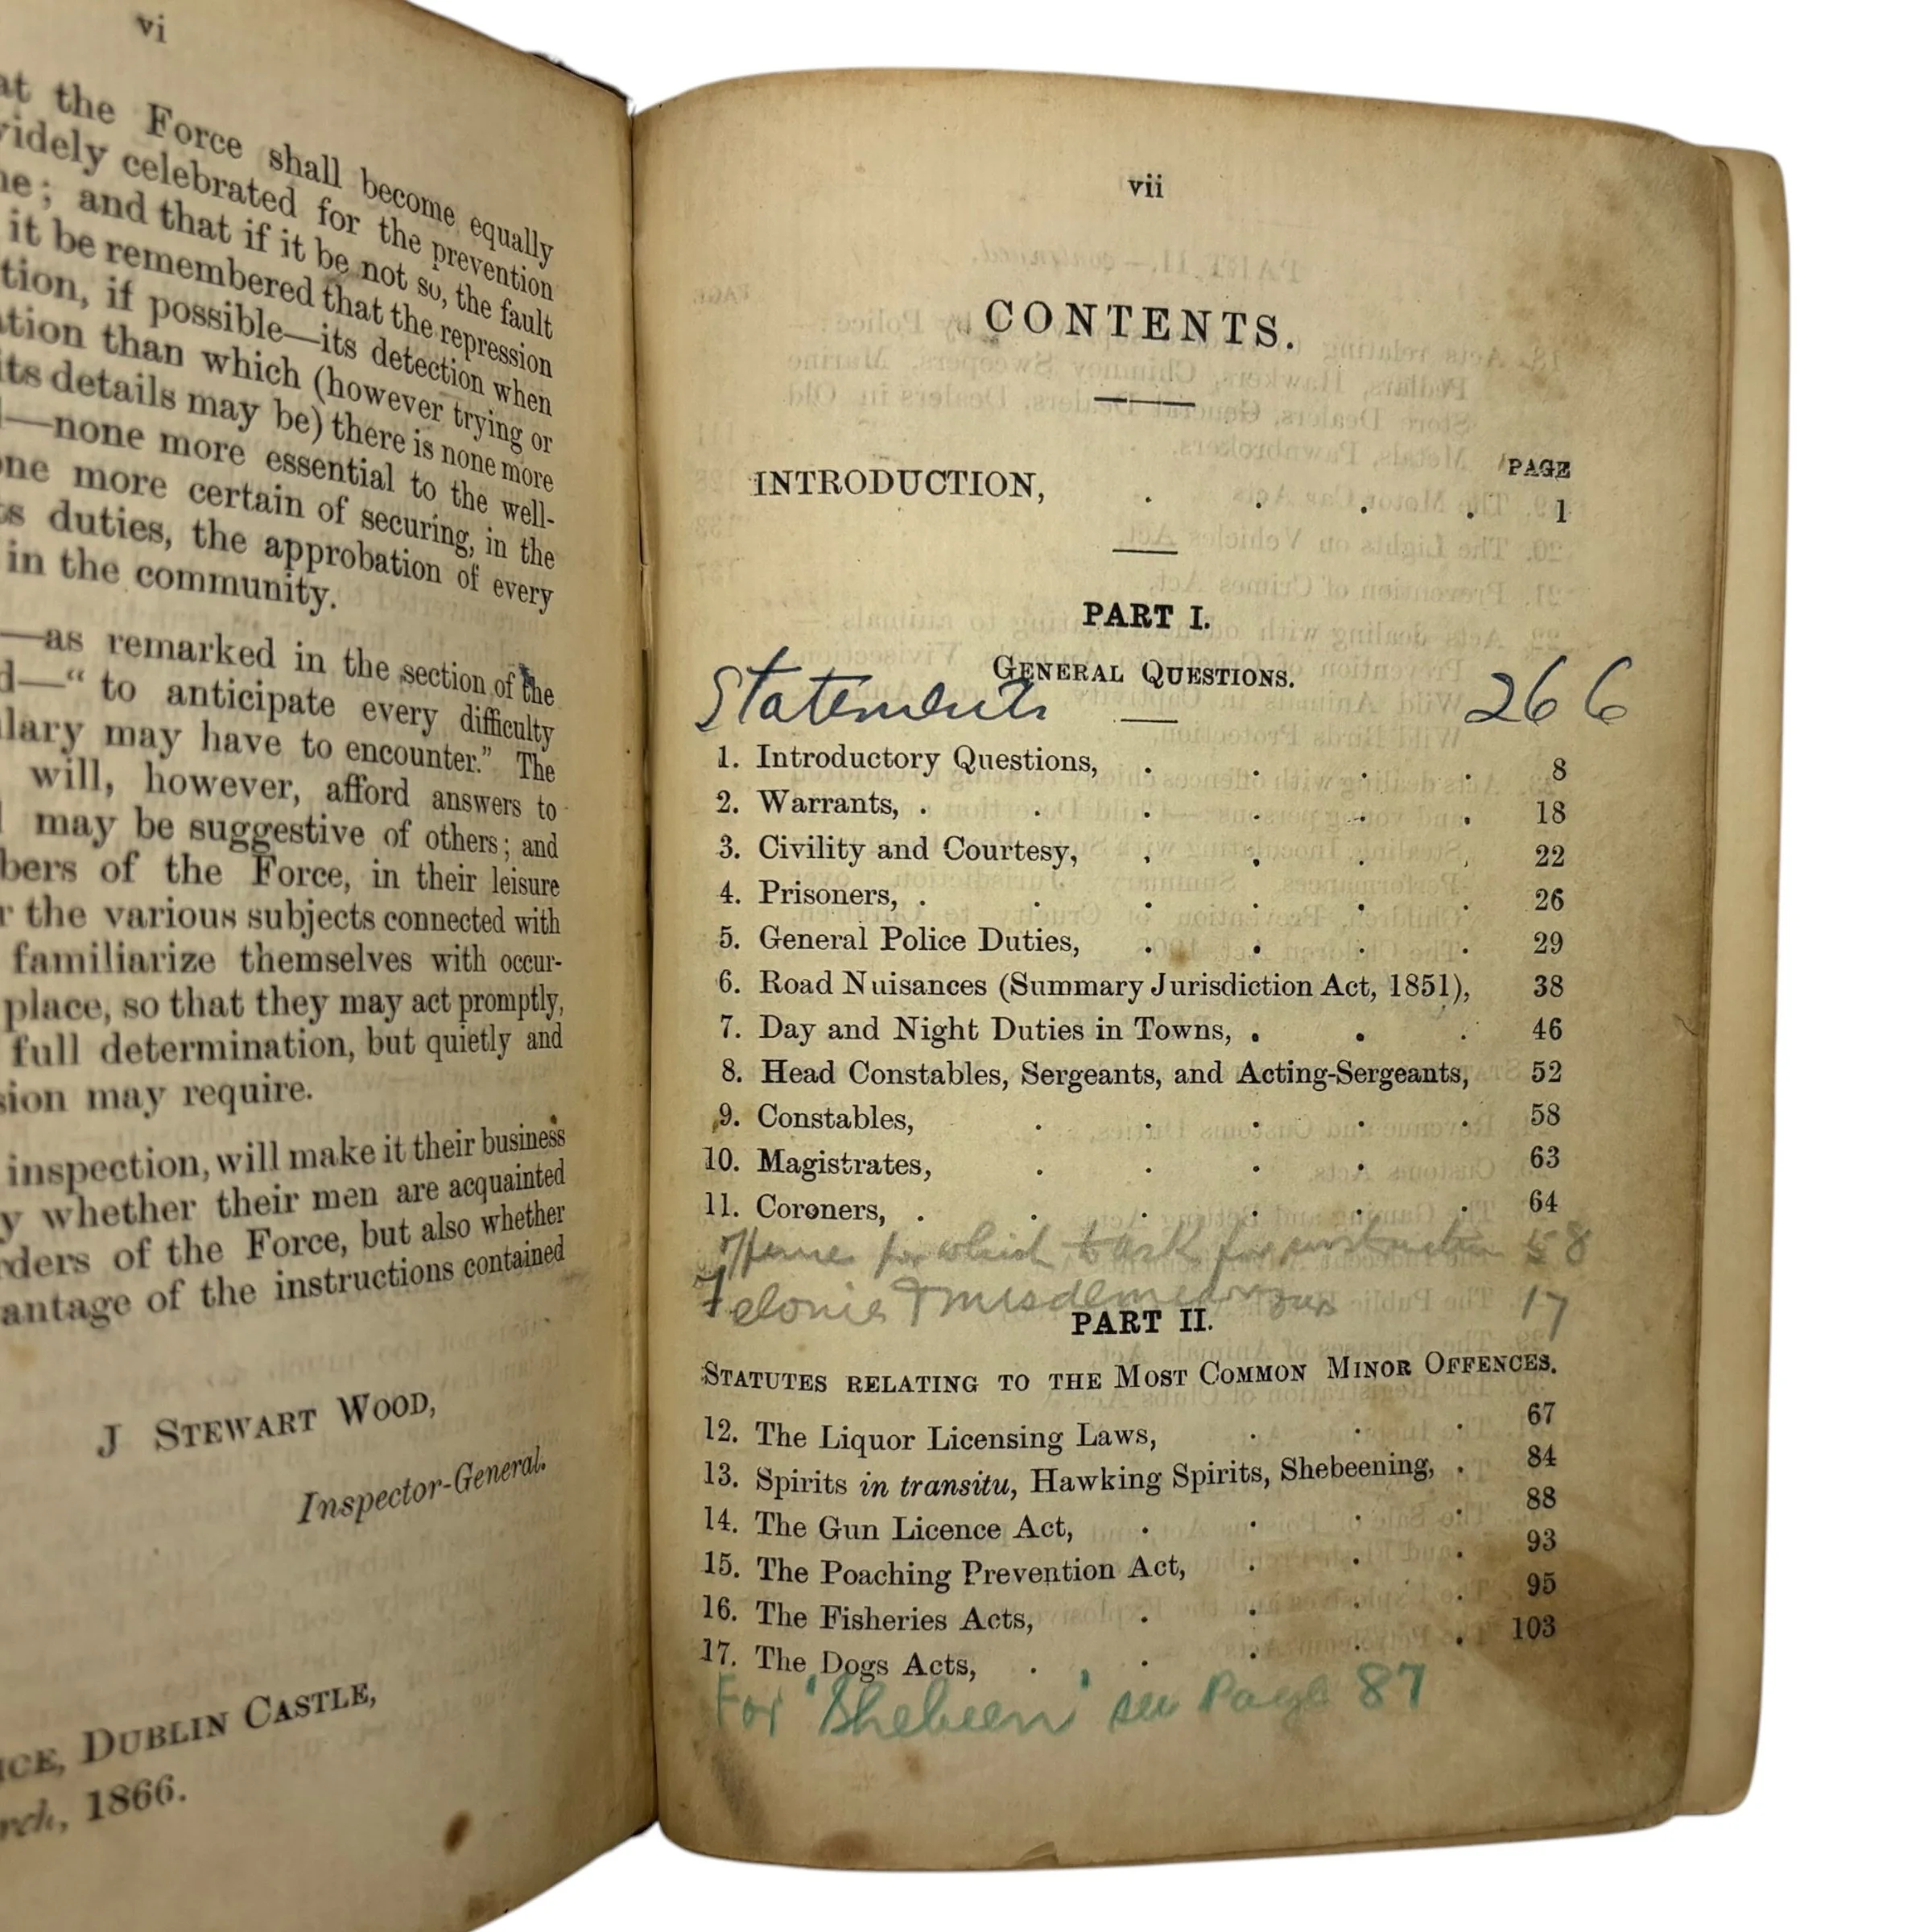 vi
at the Force shall become equally
widely celebrated for the prevention
ne; and that if it be not so, the fault
it be remembered that the repression
tion, if possible—its detection when
ation than which (however trying or
its details may be) there is none more
—none more essential to the well-
one more certain of securing, in the
ts duties, the approbation of every
in the community.
—as remarked in the section of the
d—“ to anticipate every difficulty
lary may have to encounter.” The
will, however, afford answers to
may be suggestive of others; and
bers of the Force, in their leisure
r the various subjects connected with
familiarize themselves with occur-
place, so that they may act promptly,
full determination, but quietly and
sion may require.
inspection, will make it their business
y whether their men are acquainted
rders of the Force, but also whether
antage of the instructions contained
J STEWART WOOD,
Inspector-General.
ICE, DUBLIN CASTLE,
rch, 1866.
vii
CONTENTS.
PAGE
INTRODUCTION, . . . . 1
PART I.
GENERAL QUESTIONS.
Statements — 266
1. Introductory Questions, . . . . 8
2. Warrants, . . . . . . 18
3. Civility and Courtesy, . . . . 22
4. Prisoners, . . . . . . 26
5. General Police Duties, . . . . 29
6. Road Nuisances (Summary Jurisdiction Act, 1851), 38
7. Day and Night Duties in Towns, . . . 46
8. Head Constables, Sergeants, and Acting-Sergeants, 52
9. Constables, . . . . . 58
10. Magistrates, . . . . 63
11. Coroners, . . . . . . 64
for which to ask for instruction 58
Felonies & misdemeanours 17
PART II.
STATUTES RELATING TO THE MOST COMMON MINOR OFFENCES.
12. The Liquor Licensing Laws, . . . 67
13. Spirits in transitu, Hawking Spirits, Shebeening, . 84
14. The Gun Licence Act, . . . . 88
15. The Poaching Prevention Act, . . . 93
16. The Fisheries Acts, . . . . 95
17. The Dogs Acts, . . . . . 103
For 'Shebeen' see Page 87